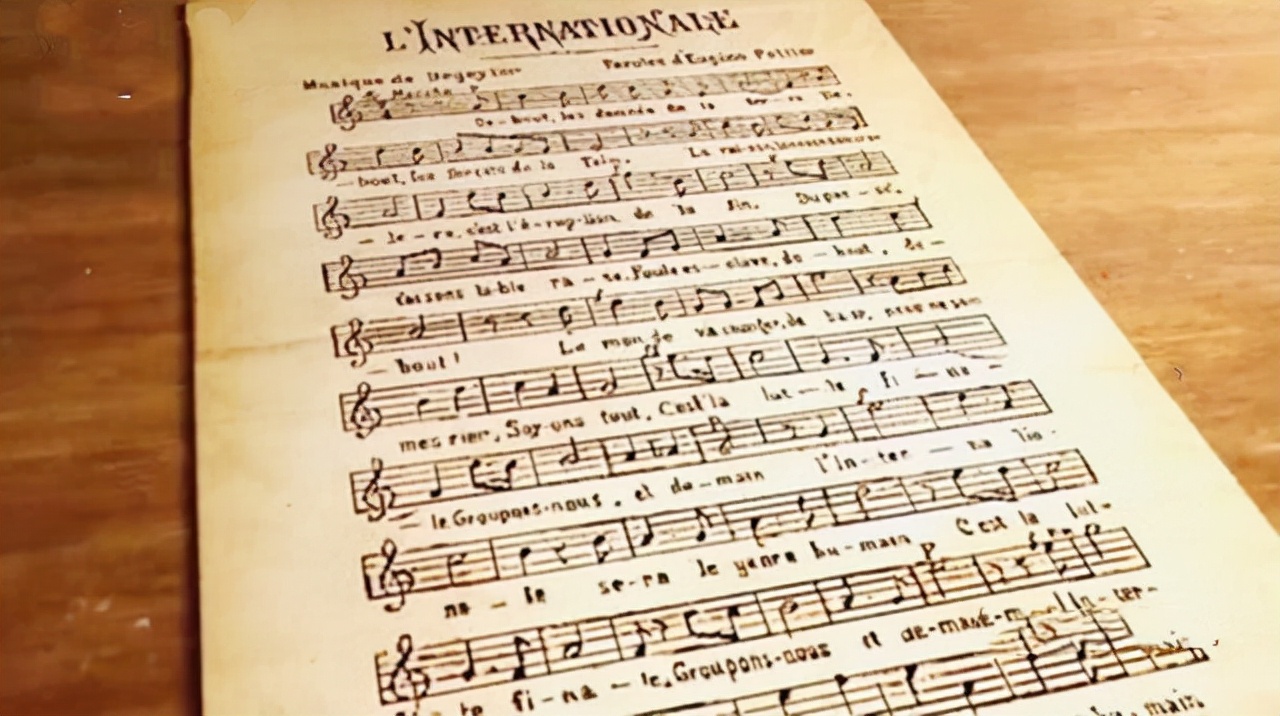 L'INTERNATIONALE
Musique de Degeyter Paroles d'Eugène Pottier
De - bout, les damnés de la ter - re De -
- bout, les forçats de la faim. La
- tè - re, c'est l'é - rup - tion de la fin. Du pas - sé,
faisons ta - ble ra - se, Foule es - clave, de - bout, de -
- bout! Le mon - de va changer, de ba - se,
mes rien, Soy - ons tout. C'est la lut - te fi - na -
- le Groupons - nous, et de - main l'In - ter - na tio -
na - le se - ra le genre hu - main C'est la lut -
te fi - na - le. Groupons - nous et
main